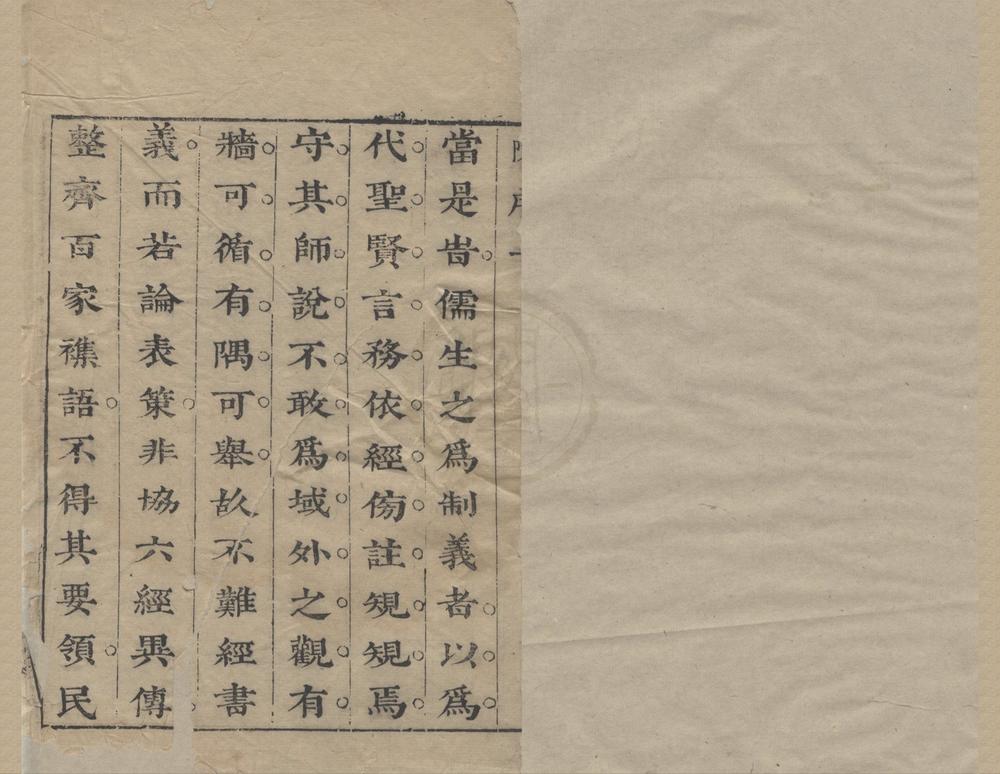 當是旹儒生之爲制義者以爲
代聖賢言務依經傍註䂓䂓焉
守其師說不敢爲域外之觀有
牆可循有隅可舉故不難經書
義而若論表策非協六經異傳
整齊百家襍語不得其要領民